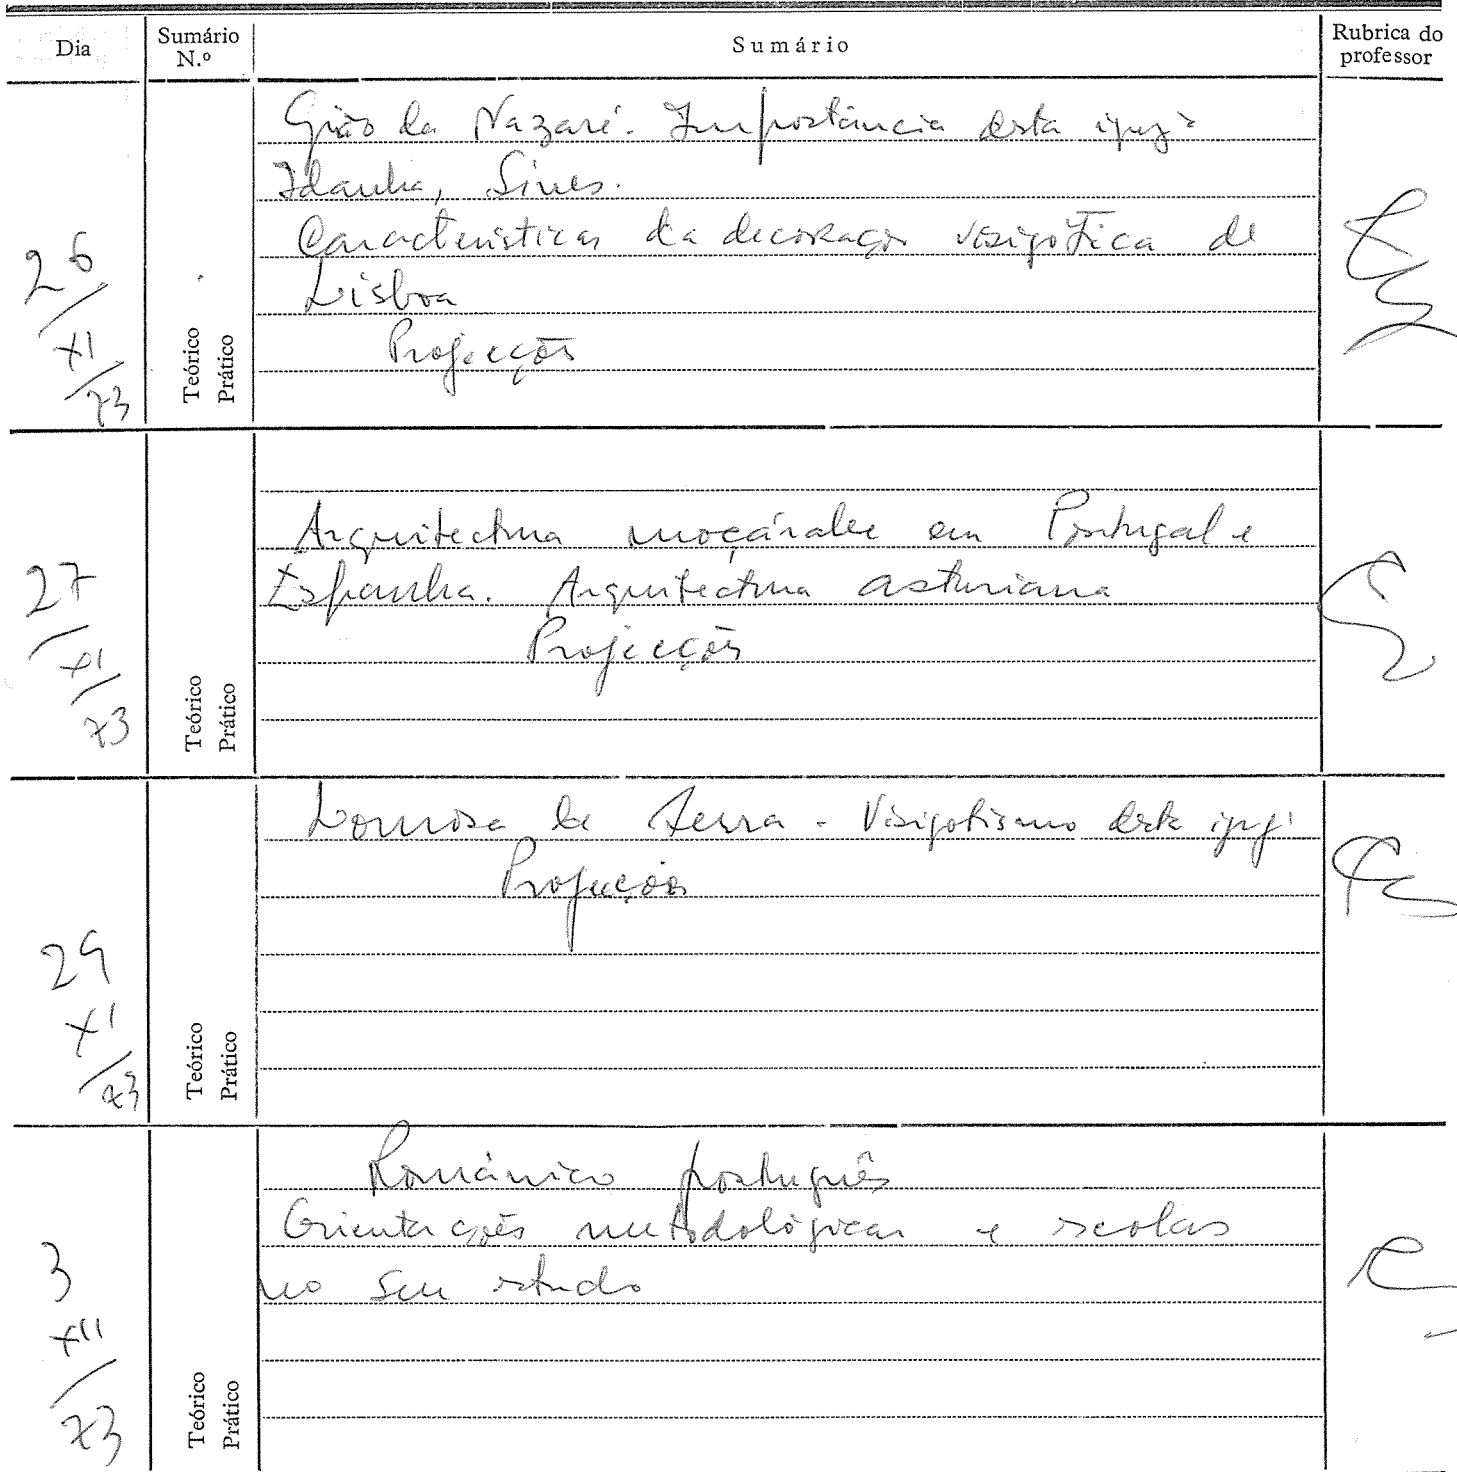 Dia
Sumário N.º
Sumário
Rubrica do professor
26/XI/73
Teórico
Prático
Gião da Nazaré. Importância desta
Idanha, Sines.
Características da decoração visigótica de
Lisboa
Projecções
27/XI/73
Teórico
Prático
Arquitectura moçárabe em Portugal e
Espanha. Arquitectura asturiana
Projecções
29 XI/73
Teórico
Prático
Lourosa da Serra - Visigotismo desta
Projecções
3 XII/73
Teórico
Prático
Românico português
Orientações metodológicas e escolas
no seu estudo